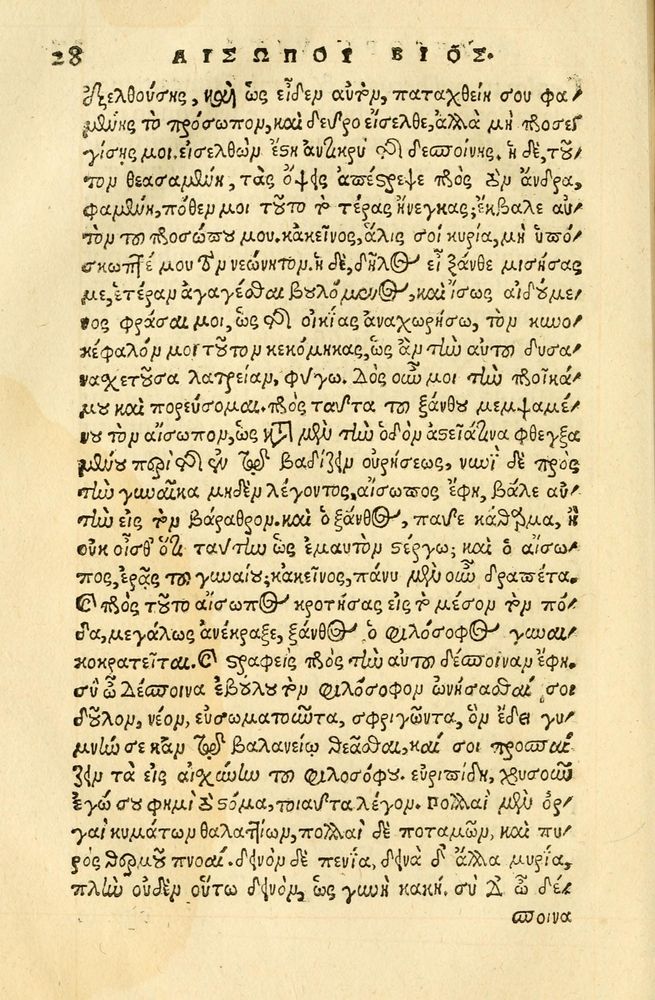 28 ΑΙΣΩΠΟΥ ΒΙΟΣ.
ἐξελθούσης, καὶ ὡς εἶδεν αὐτὸν, παταχθείη σου φα-
μένης τὸ πρόσωπον, καὶ δεῦρο εἴσελθε, ἀλλὰ μὴ προσεγ-
γίσῃς μοι. εἰσελθὼν ἔστη ἀντικρὺ τῆς δεσποίνης. ἡ δὲ, τοῦ-
τον θεασαμένη, τὰς ὄψεις ἀπέστρεψε πρὸς τὸν ἄνδρα,
φαμένη, πόθεν μοι τοῦτο τὸ τέρας ἤνεγκας; ἔκβαλε αὐ-
τὸν τοῦ προσώπου μου. κἀκεῖνος, ἅλις σοι κυρία, μὴ ὑπό-
σκωπτέ μου τὸν νεώνητον. ἡ δὲ, δῆλος εἶ ξάνθε μισήσας
με, ἑτέραν ἀγαγέσθαι βουλόμενος, καὶ ἴσως αἰδούμε-
νος φράσαι μοι, ὡς τῆς οἰκίας ἀναχωρήσω, τὸν κυνο-
κέφαλόν μοι τοῦτον κεκόμηκας, ὡς ἂν τὴν αὐτοῦ δυσα-
νασχετοῦσα λατρείαν, φύγω. Δὸς οὖν μοι τὴν προῖκά
μου καὶ πορεύσομαι. πρὸς ταῦτα τοῦ ξάνθου μεμψαμέ-
νου τὸν αἴσωπον, ὡς κατὰ μὲν τὴν ὁδὸν ἀστεῖά τινα φθεγξα
μένου περὶ τῆς ἐν τῷ βαδίζειν οὐρήσεως, νυνὶ δὲ πρὸς
τὴν γυναῖκα μηδὲν λέγοντος. αἴσωπος ἔφη, βάλε αὐ-
τὴν εἰς τὸν βάραθρον. καὶ ὁ ξάνθος, παῦε κάθαρμα, ἢ
οὐκ οἶσθ' ὅτι ταύτην ὡς ἐμαυτὸν στέργω; καὶ ὁ αἴσω-
πος, ἐρᾷς τοῦ γυναίου; κἀκεῖνος, πάνυ μὲν οὖν δραπέτα.
Καὶ πρὸς τοῦτο αἴσωπος κροτήσας εἰς τὸ μέσον τὸν πό-
δα, μεγάλως ἀνέκραξε, ξάνθος ὁ φιλόσοφος γυναι-
κοκρατεῖται. Καὶ στραφεὶς πρὸς τὴν αὐτοῦ δέσποιναν ἔφη.
σὺ ὦ Δέσποινα ἐβούλου τὸν φιλόσοφον ὠνήσασθαί σοι
δοῦλον, νέον, εὐσωματοῦντα, σφριγῶντα, ὃν ἔδει γυ-
μνήν σε κἀν τῷ βαλανείῳ θεᾶσθαι, καί σοι προσπαί-
ζειν τὰ εἰς αἰχώνην τοῦ φιλοσόφου. εὐριπίδη, χρυσοῦν
ἐγώ σου φημὶ τὸ στόμα, τοιαῦτα λέγον. Πολλαὶ μὲν ὀρ-
γαὶ κυμάτων θαλαττίων, πολλαὶ δὲ ποταμῶν, καὶ πυ-
ρὸς θερμοῦ πνοαί. δεινὸν δὲ πενία, δεινὰ δ' ἄλλα μυρία,
πλὴν οὐδὲν οὕτω δεινὸν, ὡς γυνὴ κακή. σὺ δ' ὦ δέ-
σποινα